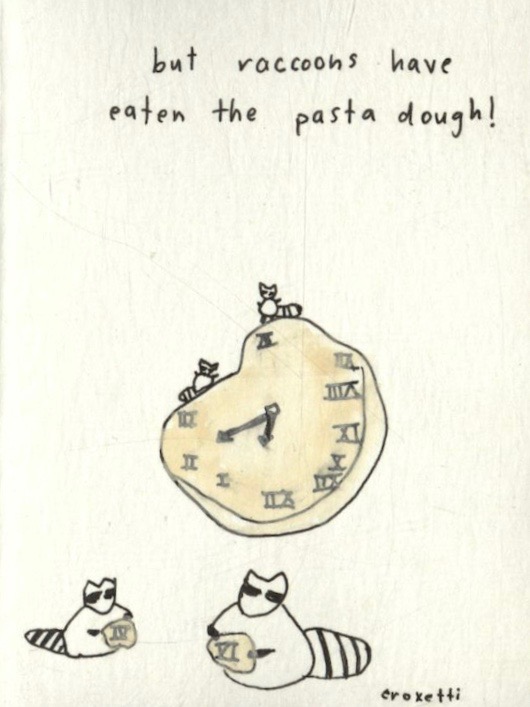 but raccoons have
eaten the pasta dough!
V
VII
VIII
III
IX
II
X
I
XI
XII
IV
VI
croxetti